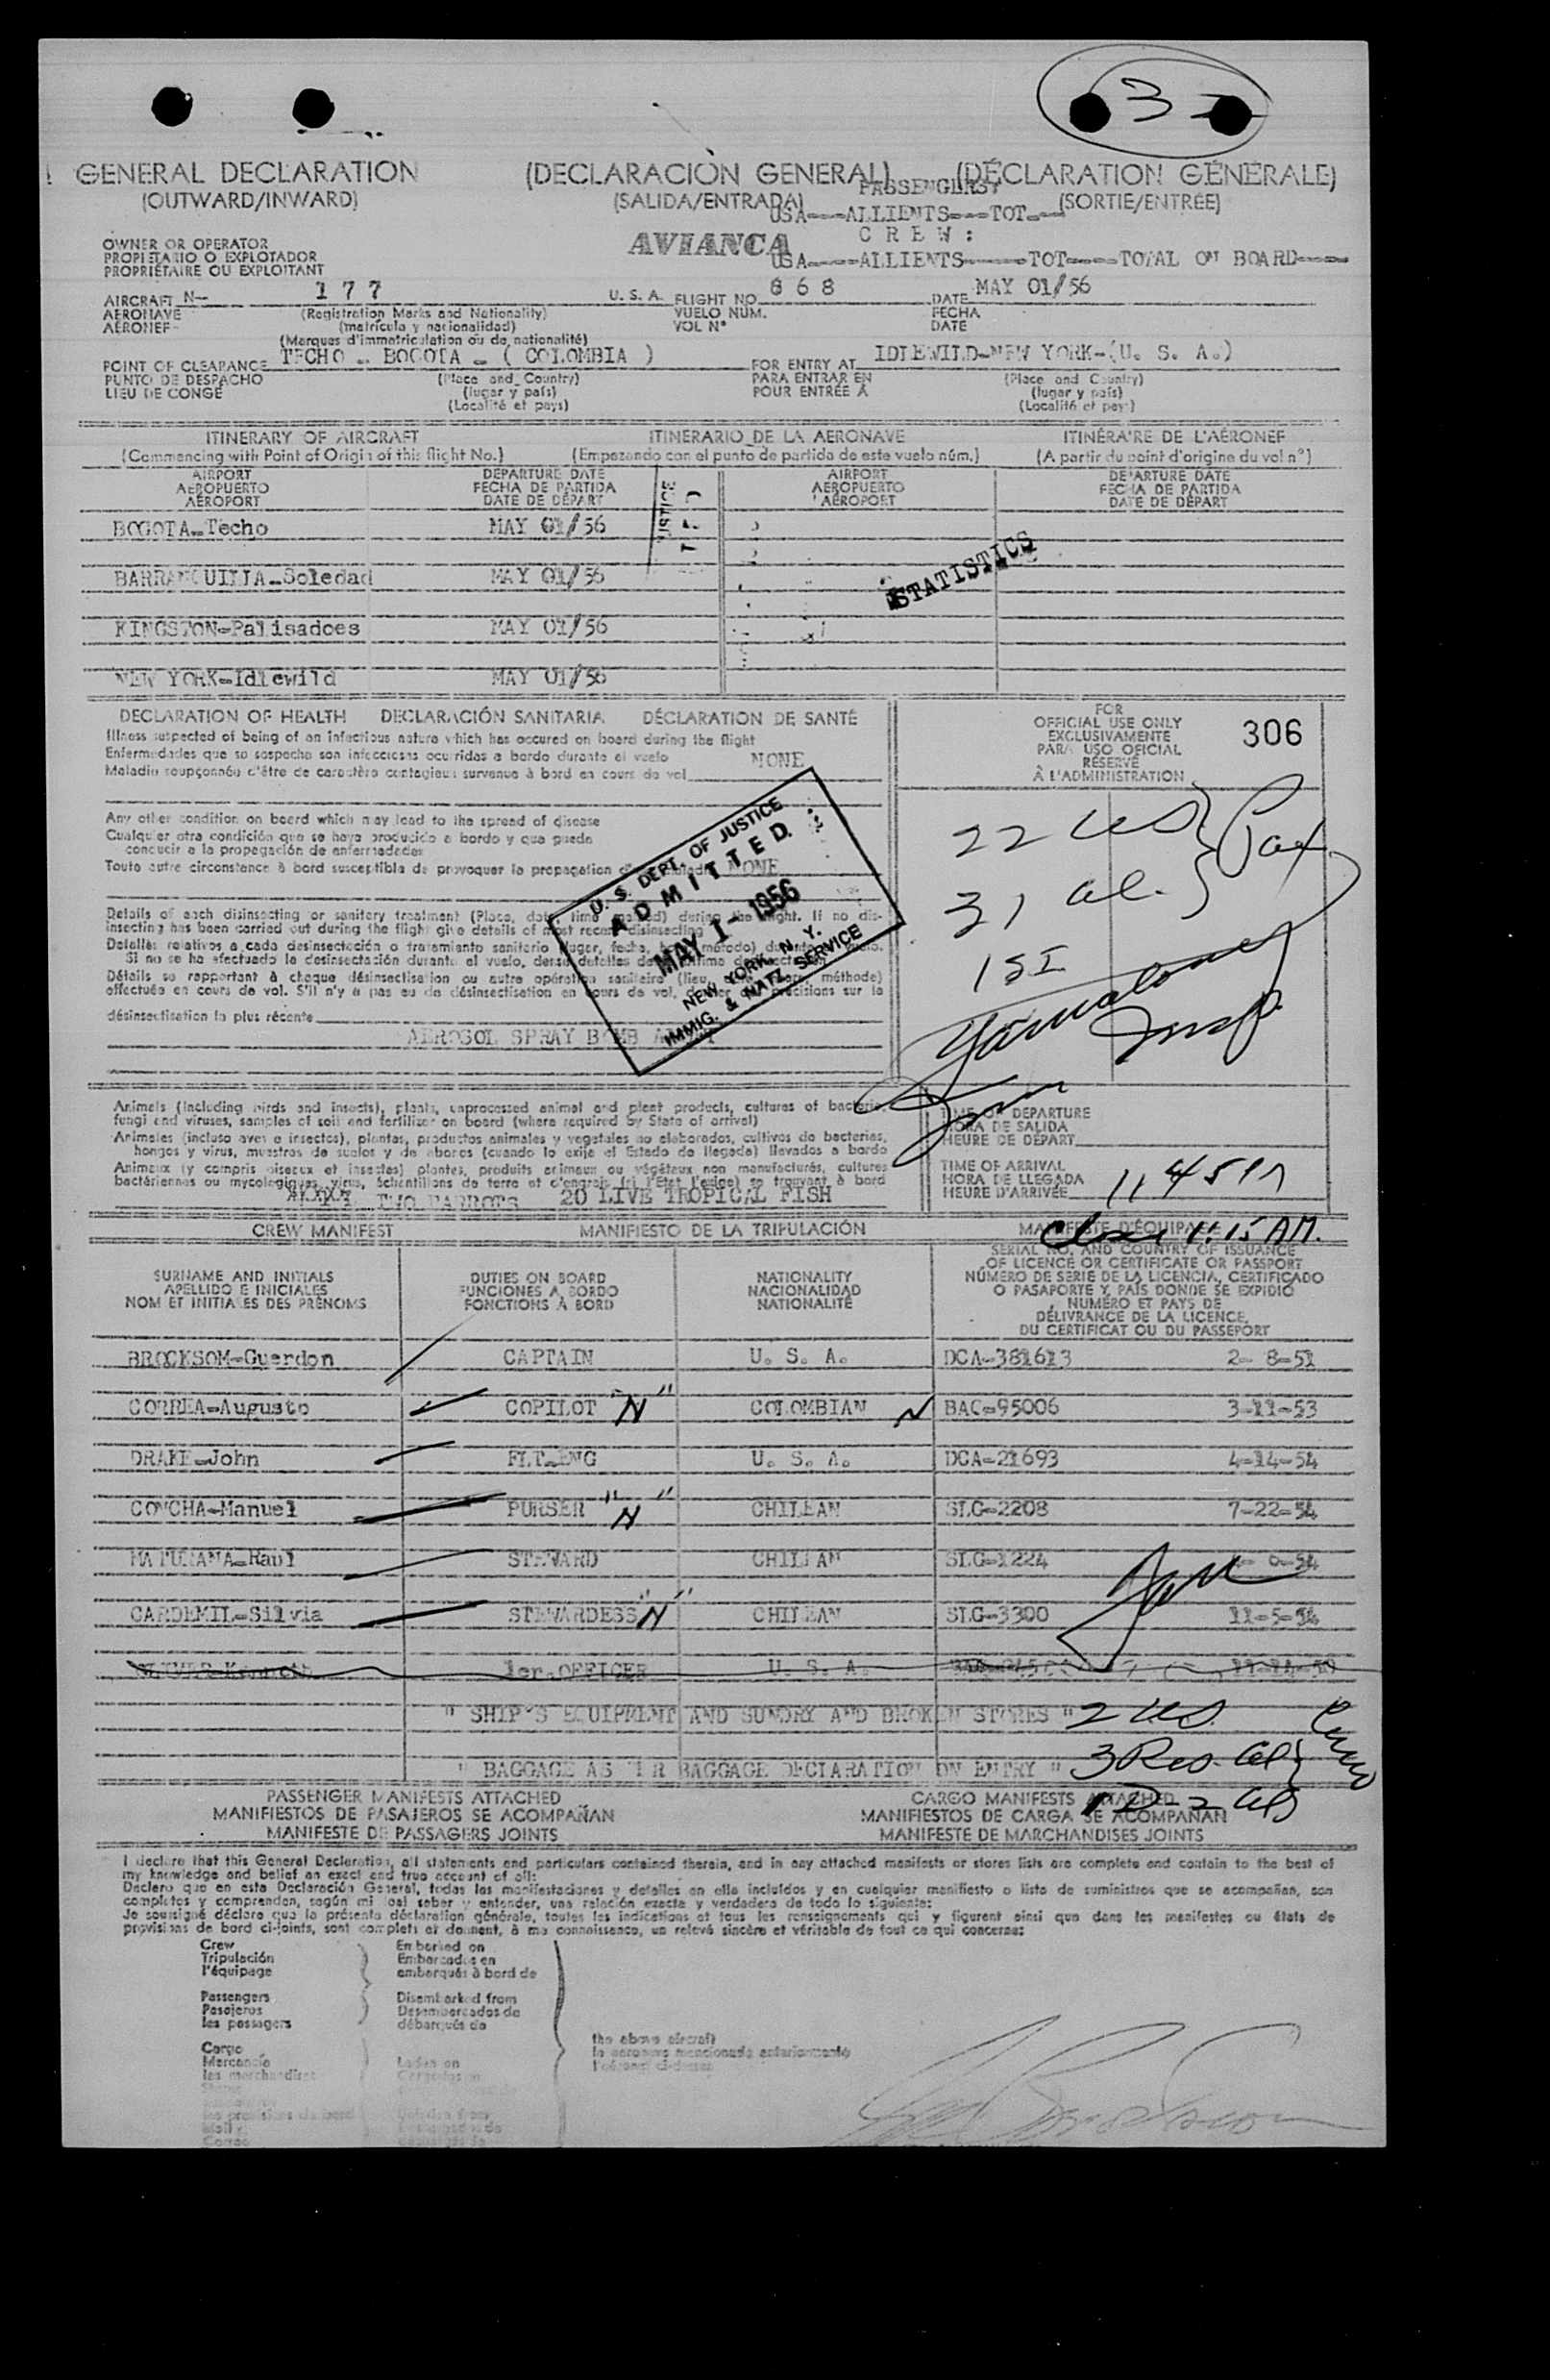 3
GENERAL DECLARATION (DECLARACION GENERAL) (DÉCLARATION GÉNÉRALE)
(OUTWARD/INWARD) (SALIDA/ENTRADA) (SORTIE/ENTRÉE)
PASSENGERS
USA----ALLIENTS----TOT---
OWNER OR OPERATOR AVIANCA C R E W :
PROPIETARIO O EXPLOTADOR
PROPRIÉTAIRE OU EXPLOITANT USA-----ALLIENTS------TOT-----TOTAL ON BOARD-----
AIRCRAFT N- 1 7 7 U. S. A. FLIGHT NO. 6 6 8 DATE MAY 01/56
AERONAVE (Registration Marks and Nationality) VUELO NÚM. FECHA
AÉRONEF (matrícula y nacionalidad) VOL N° DATE
(Marques d'immatriculation ou de nationalité)
POINT OF CLEARANCE TECHO - BOGOTA - ( COLOMBIA ) FOR ENTRY AT IDLEWILD-NEW YORK-(U. S. A.)
PUNTO DE DESPACHO (Place and Country) PARA ENTRAR EN (Place and Country)
LIEU DE CONGÉ (lugar y país) POUR ENTRÉE À (lugar y país)
(Localité et pays) (Localité et pays)
ITINERARY OF AIRCRAFT ITINERARIO DE LA AERONAVE ITINÉRAIRE DE L'AÉRONEF
(Commencing with Point of Origin of this flight No.) (Empezando con el punto de partida de este vuelo núm.) (A partir du point d'origine du vol n°)
AIRPORT DEPARTURE DATE AIRPORT DEPARTURE DATE
AEROPUERTO FECHA DE PARTIDA AEROPUERTO FECHA DE PARTIDA
AÉROPORT DATE DE DÉPART AÉROPORT DATE DE DÉPART
BOGOTA-Techo MAY 01/56
STATISTICS
BARRANQUILLA-Soledad MAY 01/56
KINGSTON-Palisadoes MAY 01/56
NEW YORK-Idlewild MAY 01/56
DECLARATION OF HEALTH DECLARACIÓN SANITARIA DÉCLARATION DE SANTÉ
Illness suspected of being of an infectious nature which has occured on board during the flight
Enfermedades que se sospecha son infecciosas ocurridas a bordo durante el vuelo
Maladie soupçonnée d'être de caractère contagieux survenue à bord en cours de vol NONE
FOR
OFFICIAL USE ONLY
EXCLUSIVAMENTE
PARA USO OFICIAL
RÉSERVÉ
À L'ADMINISTRATION
306
Any other condition on board which may lead to the spread of disease
Cualquier otra condición que se haya producido a bordo y que pueda
conducir a la propagación de enfermedades
Toute autre circonstance à bord susceptible de provoquer la propagation NONE
22 US
31 al. } Pax
1SI
Insp.
U. S. DEPT. OF JUSTICE
ADMITTED
MAY 1 - 1956
NEW YORK, N. Y.
IMMIG. & NATZ. SERVICE
Details of each disinsecting or sanitary treatment (Place, date, time, method) during the flight. If no dis-
insecting has been carried out during the flight give details of most recent disinsecting
Detalles relativos a cada desinsectación o tratamiento sanitario (lugar, fecha, hora, método) durante el vuelo.
Si no se ha efectuado la desinsectación durante el vuelo, dense detalles de
Détails se rapportant à chaque désinsectisation ou autre opération sanitaire (lieu, méthode)
effectuée en cours de vol. S'il n'y a pas eu de désinsectisation en cours de vol, précisions sur la
désinsectisation la plus récente
AEROSOL SPRAY BOMB
Animals (including birds and insects), plants, unprocessed animal and plant products, cultures of bacteria,
fungi and viruses, samples of soil and fertilizer on board (where required by State of arrival)
Animales (incluso aves e insectos), plantas, productos animales y vegetales no elaborados, cultivos de bacterias,
hongos y virus, muestras de suelos y de abonos (cuando lo exija el Estado de llegada) llevados a bordo
Animaux (y compris oiseaux et insectes) plantes, produits animaux ou végétaux non manufacturés, cultures
bactériennes ou mycologiques, virus, échantillons de terre et d'engrais (si l'Etat l'exige) se trouvant à bord
TWO PARROTS 20 LIVE TROPICAL FISH
TIME OF DEPARTURE
HORA DE SALIDA
HEURE DE DÉPART
TIME OF ARRIVAL
HORA DE LLEGADA
HEURE D'ARRIVÉE 11 45 P
CREW MANIFEST MANIFIESTO DE LA TRIPULACIÓN MANIFESTE D'ÉQUIPAGE
1:15 AM.
SURNAME AND INITIALS DUTIES ON BOARD NATIONALITY SERIAL NO. AND COUNTRY OF ISSUANCE
APELLIDO E INICIALES FUNCIONES A BORDO NACIONALIDAD OF LICENCE OR CERTIFICATE OR PASSPORT
NOM ET INITIALES DES PRÉNOMS FONCTIONS À BORD NATIONALITÉ NÚMERO DE SERIE DE LA LICENCIA, CERTIFICADO
O PASAPORTE Y PAÍS DONDE SE EXPIDIÓ
NUMÉRO ET PAYS DE
DÉLIVRANCE DE LA LICENCE,
DU CERTIFICAT OU DU PASSEPORT
BROCKSOM-Guerdon CAPTAIN U. S. A. DCA-381613 2- 8-51
CORREA-Augusto COPILOT "N" COLOMBIAN BAC-95006 3-11-53
DRAKE-John FLT-ENG U. S. A. DCA-21693 4-14-54
CONCHA-Manuel PURSER "N" CHILEAN SLG-2208 7-22-54
MATURANA-Raul STEWARD CHILEAN SLG-1224
CARDEMIL-Silvia STEWARDESS "N" CHILEAN SLG-3300 11-5-54
Kenneth 1er.OFFICER U. S. A.
" SHIP'S EQUIPMENT AND SUNDRY AND BROKEN STORES " 2 US
" BAGGAGE AS PER BAGGAGE DECLARATION ON ENTRY " 3 Res. al
D-2 als
PASSENGER MANIFESTS ATTACHED CARGO MANIFESTS ATTACHED
MANIFIESTOS DE PASAJEROS SE ACOMPAÑAN MANIFIESTOS DE CARGA SE ACOMPAÑAN
MANIFESTE DE PASSAGERS JOINTS MANIFESTE DE MARCHANDISES JOINTS
I declare that this General Declaration, all statements and particulars contained therein, and in any attached manifests or stores lists are complete and contain to the best of
my knowledge and belief an exact and true account of all:
Declaro que en esta Declaración General, todas las manifestaciones y detalles en ella incluídos y en cualquier manifiesto o lista de suministros que se acompañan, son
completos y comprenden, según mi leal saber y entender, una relación exacta y verdadera de todo lo siguiente:
Je soussigné déclare que la présente déclaration générale, toutes les indications et tous les renseignements qui y figurent ainsi que dans les manifestes ou états de
provisions de bord ci-joints, sont complets et donnent, à ma connaissance, un relevé sincère et véritable de tout ce qui concerne:
Crew Embarked on
Tripulación Embarcados en
l'équipage embarqués à bord de
Passengers Disembarked from
Pasajeros Desembarcados de
les passagers débarqués de
the above aircraft
Cargo la aeronave mencionada anteriormente
Mercancía Laden on
les marchandises